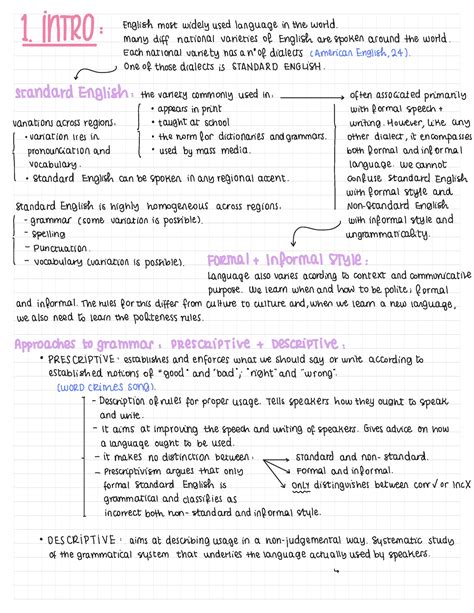 1. INTRO:
English most widely used language in the world.
Many diff national varieties of English are spoken around the world.
Each national variety has a nº of dialects (American English, 24).
One of those dialects is STANDARD ENGLISH.
Standard English: the variety commonly used in:
• appears in print
• taught at school
• the norm for dictionaries and grammars.
• used by mass media.
often associated primarily
with formal speech +
writing. However, like any
other dialect, it encompasses
both formal and informal
language. We cannot
confuse Standard English
with formal style and
Non-Standard English
with informal style and
ungrammaticality.
variations across regions:
• variation lies in
pronounciation and
vocabulary.
• Standard English can be spoken in any regional accent.
Standard English is highly homogeneous across regions.
- grammar (some variation is possible).
- spelling
- Punctuation.
- vocabulary (variation is possible).
Formal + Informal Style:
Language also varies acording to context and communicative
purpose. We learn when and how to be polite, formal
and informal. The rules for this differ from culture to culture and, when we learn a new language,
we also need to learn the politeness rules.
Approaches to grammar: PRESCRIPTIVE + DESCRIPTIVE:
• PRESCRIPTIVE: establishes and enforces what we should say or write according to
established notions of "good" and "bad"; "right" and "wrong".
(WORD CRIMES SONG).
- Description of rules for proper usage. Tells speakers how they ought to speak
and write.
- It aims at improving the speech and writing of speakers. Gives advice on how
a language ought to be used.
- it makes no distinction between:
standard and non-standard.
Formal and informal.
Only distinguishes between corr √ or IncX
- Prescriptivism argues that only
formal Standard English is
grammatical and classifies as
incorrect both non-standard and informal style.
• DESCRIPTIVE: aims at describing usage in a non-judgemental way. Systematic study
of the grammatical system that underlies the language actually used by speakers.